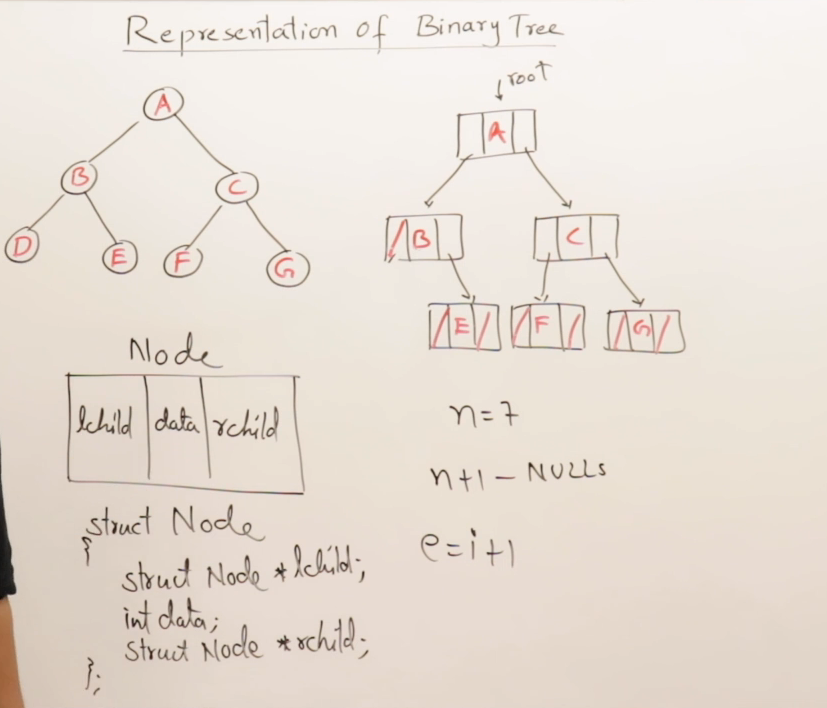 Representation of Binary Tree
A
B
C
D
E
F
G
root
A
B
C
E
F
G
Node
lchild data rchild
struct Node
{
struct Node *lchild;
int data;
struct Node *rchild;
};
n=7
n+1 - NULLS
e=i+1